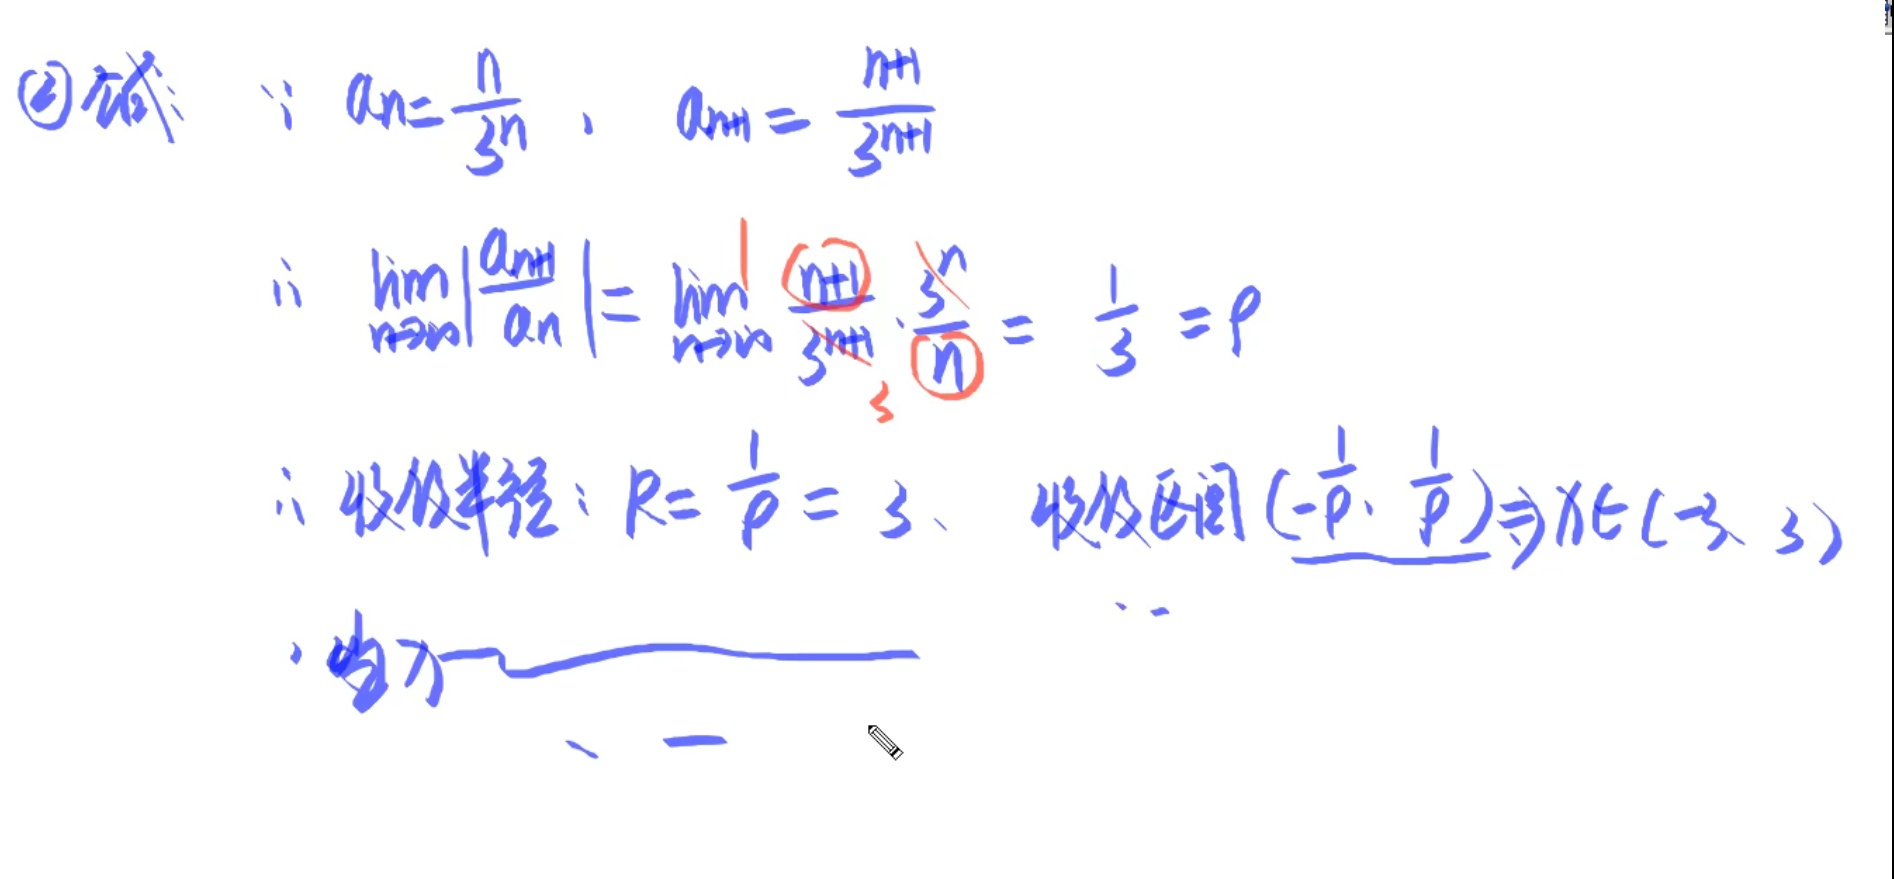 ② 减: ∵ an = n/3^n , a_{n+1} = (n+1)/3^{n+1}
∴ lim_{n→∞} |a_{n+1}/a_n| = lim_{n→∞} (n+1)/3^{n+1} · 3^n/n = 1/3 = ρ
1
3
∴ 收敛半径: R = 1/ρ = 3、 收敛区间 (-1/ρ, 1/ρ) ⇒ x∈(-3, 3)
当